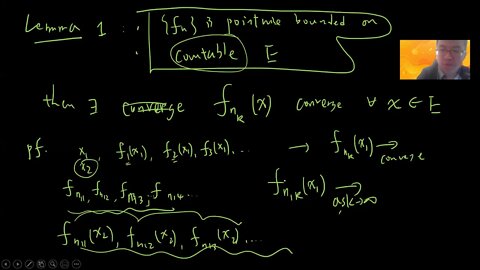 Lemma 1 : {fn} is pointwise bounded on
countable E
then ∃ f_{n_k}(x) converge ∀ x ∈ E
pf. x_1, f_1(x_1), f_2(x_1), f_3(x_1), ... → f_{n_k}(x_1) → converge
x_2
f_{n_{11}}, f_{n_{12}}, f_{n_{13}}, f_{n_{14}} ... f_{n_{1k}}(x_1) → as k→∞
f_{n_{11}}(x_2), f_{n_{12}}(x_2), f_{n_{13}}(x_2) ...